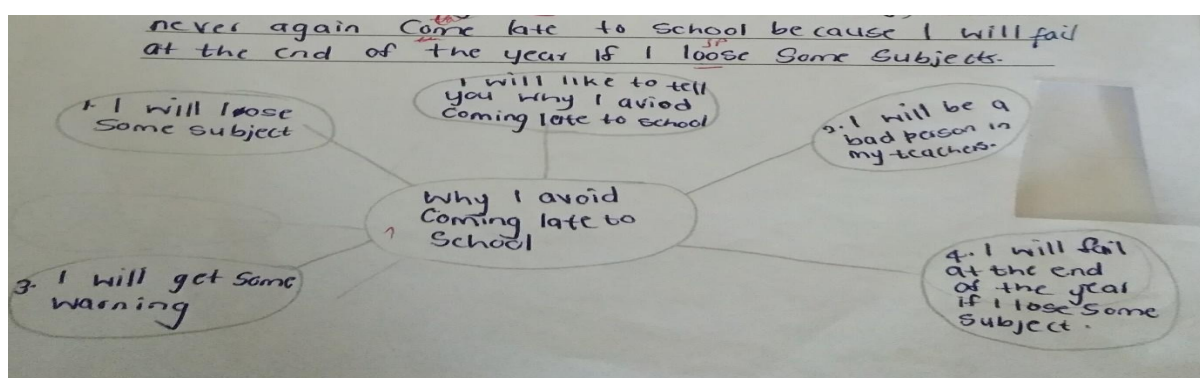 never again Come late to school because I will fail
at the end of the year if I loose Some Subjects.
sp
I will like to tell
you why I aviod
Coming late to school
1. I will loose
Some subject
2. I will be a
bad person in
my teachers.
Why I avoid
Coming late to
School
3. I will get Some
warning
4. I will fail
at the end
of the year
if I lose Some
Subject.